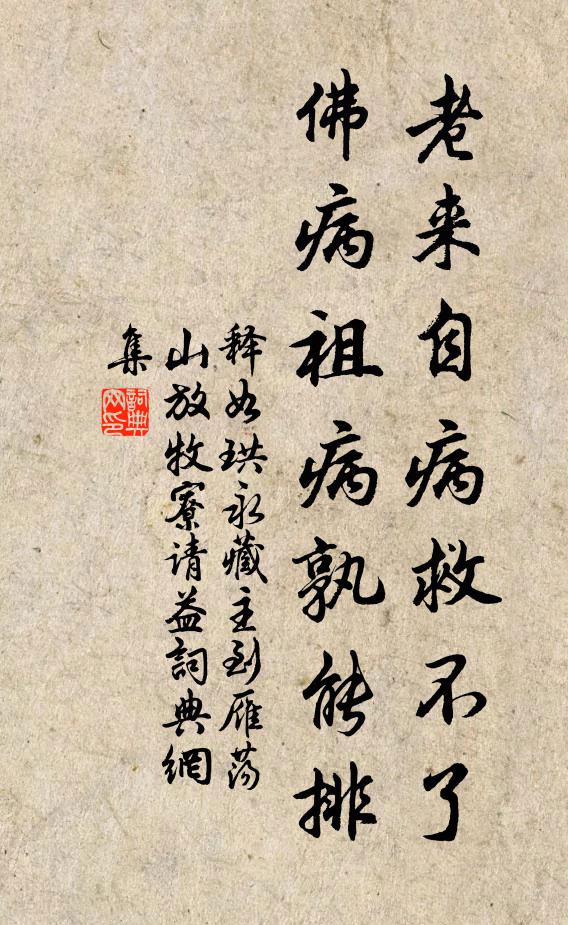 老来自病救不了
佛病祖病孰能排
释如珙永藏主到雁荡
山放牧寮请益詞典網
集
詞典網印